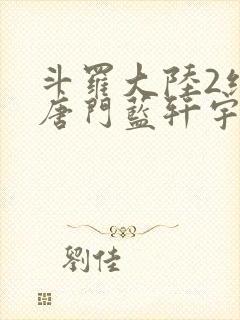 斗羅大陸2
唐門藍軒宇
劉佳